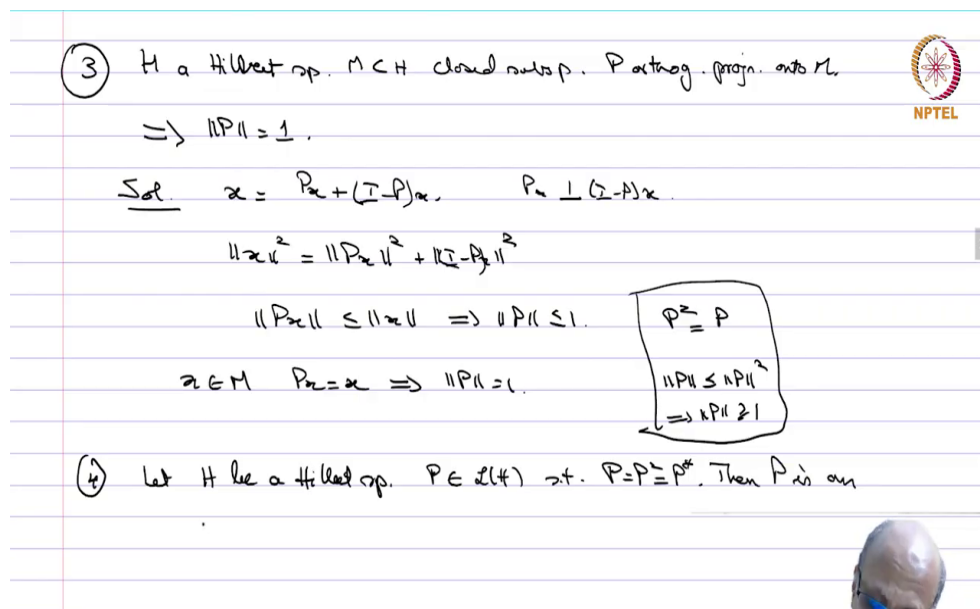 ③ H a Hilbert sp. M ⊂ H closed subsp. P orthog. projn. onto M.
NPTEL
⟹ ||P|| = 1.
Sol. x = Px + (I-P)x, Px ⊥ (I-P)x.
||x||² = ||Px||² + ||(I-P)x||²
||Px|| ≤ ||x|| ⟹ ||P|| ≤ 1.
x ∈ M Px = x ⟹ ||P|| = 1.
P² = P
||P|| ≤ ||P||²
⟹ ||P|| ≥ 1
④ Let H be a Hilbert sp. P ∈ L(H) s.t. P = P² = P*. Then P is an